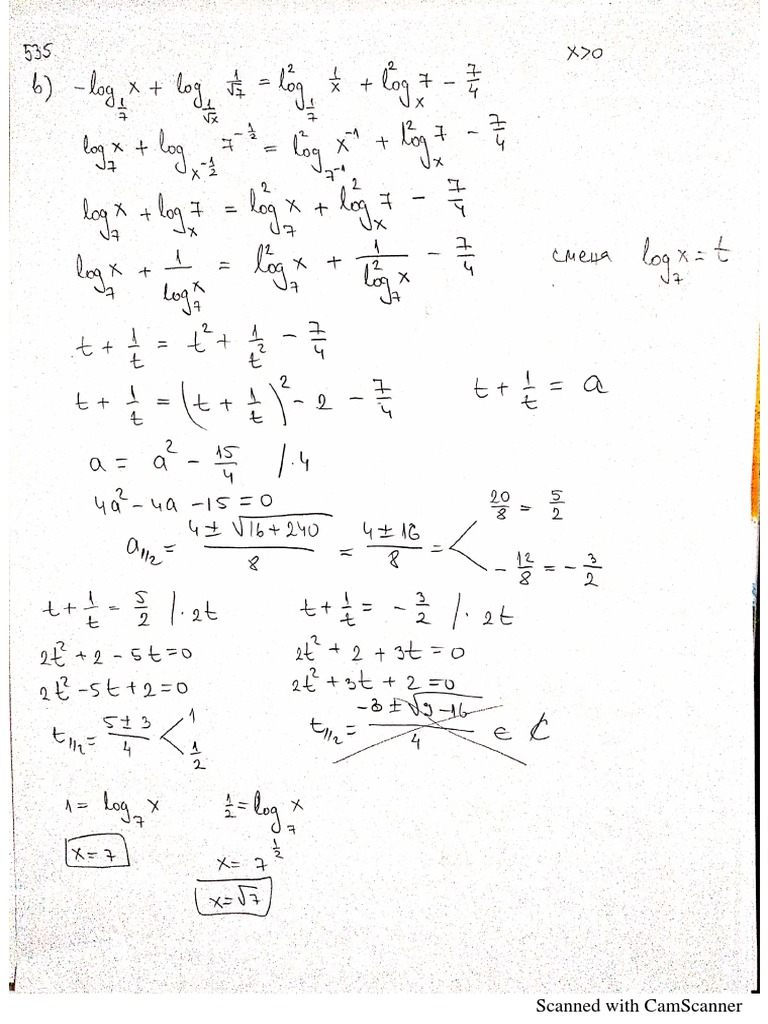 535 x>0
b) -log_{1/7} x + log_{1/√x} 1/√7 = log²_{1/7} 1/x + log²_x 7 - 7/4
log_7 x + log_{x^{-1/2}} 7^{-1/2} = log²_{7^{-1}} x^{-1} + log²_x 7 - 7/4
log_7 x + log_x 7 = log²_7 x + log²_x 7 - 7/4
log_7 x + 1/log_7 x = log²_7 x + 1/log²_7 x - 7/4 смена log_7 x = t
t + 1/t = t² + 1/t² - 7/4
t + 1/t = (t + 1/t)² - 2 - 7/4 t + 1/t = a
a = a² - 15/4 /·4
4a² - 4a - 15 = 0
a_{1/2} = (4 ± √(16 + 240))/8 = (4 ± 16)/8 = < 20/8 = 5/2
-12/8 = -3/2
t + 1/t = 5/2 /·2t t + 1/t = -3/2 /·2t
2t² + 2 - 5t = 0 2t² + 2 + 3t = 0
2t² - 5t + 2 = 0 2t² + 3t + 2 = 0
t_{1/2} = (5 ± 3)/4 < 1 t_{1/2} = (-3 ± √(9 - 16))/4 ∈ ℂ
1/2
1 = log_7 x 1/2 = log_7 x
x = 7 x = 7^{1/2}
x = √7
Scanned with CamScanner